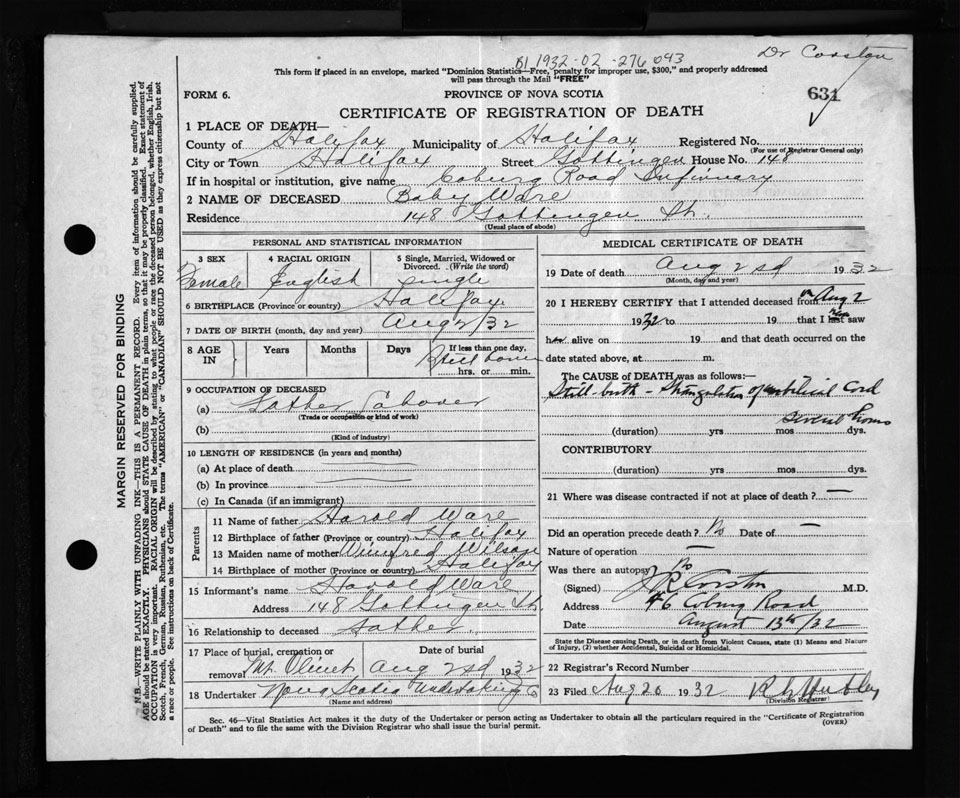 Dr Corston
B1 1932-02-276 043
This form if placed in an envelope, marked "Dominion Statistics—Free, penalty for improper use, $300," and properly addressed
will pass through the Mail "FREE"
FORM 6.
PROVINCE OF NOVA SCOTIA
631
CERTIFICATE OF REGISTRATION OF DEATH
1 PLACE OF DEATH—
County of Halifax Municipality of Halifax Registered No.
(For use of Registrar General only)
City or Town Halifax Street Gottingen House No. 148
If in hospital or institution, give name Coburg Road Infirmary
2 NAME OF DECEASED Baby Ware
Residence 148 Gottingen St.
(Usual place of abode)
PERSONAL AND STATISTICAL INFORMATION
3 SEX 4 RACIAL ORIGIN 5 Single, Married, Widowed or Divorced. (Write the word)
Female English Single
6 BIRTHPLACE (Province or country) Halifax
7 DATE OF BIRTH (month, day and year) Aug 2/32
8 AGE IN Years Months Days If less than one day,
Still born
hrs. or min.
9 OCCUPATION OF DECEASED
(a) Father Labourer
(Trade or occupation or kind of work)
(b)
(Kind of industry)
10 LENGTH OF RESIDENCE (in years and months)
(a) At place of death
(b) In province
(c) In Canada (if an immigrant)
Parents
11 Name of father Harold Ware
12 Birthplace of father (Province or country) Halifax
13 Maiden name of mother Winifred Wilson
14 Birthplace of mother (Province or country) Halifax
15 Informant's name Harold Ware
Address 148 Gottingen St.
16 Relationship to deceased Father
17 Place of burial, cremation or removal Mt. Olivet Date of burial Aug 2nd 1932
18 Undertaker Nova Scotia Undertaking Co
(Name and address)
MEDICAL CERTIFICATE OF DEATH
19 Date of death Aug 2nd 1932
(Month, day and year)
20 I HEREBY CERTIFY that I attended deceased from on Aug 2
1932 to 19 that I last saw
h alive on 19 and that death occurred on the
date stated above, at m.
The CAUSE OF DEATH was as follows:—
Still-birth - Strangulation of umbilical Cord
several hours
(duration) yrs mos dys.
CONTRIBUTORY
(duration) yrs. mos. dys.
21 Where was disease contracted if not at place of death? —
Did an operation precede death? No Date of —
Nature of operation —
Was there an autopsy? No
(Signed) Corston M.D.
Address 46 Coburg Road
Date August 13th/32
State the Disease causing Death, or in death from Violent Causes, state (1) Means and Nature
of Injury, (2) whether Accidental, Suicidal or Homicidal.
22 Registrar's Record Number
23 Filed Aug 20 1932
(Division Registrar)
Sec. 46—Vital Statistics Act makes it the duty of the Undertaker or person acting as Undertaker to obtain all the particulars required in the "Certificate of Registration
of Death" and to file the same with the Division Registrar who shall issue the burial permit.
(OVER)
MARGIN RESERVED FOR BINDING
N.B.—WRITE PLAINLY WITH UNFADING INK—THIS IS A PERMANENT RECORD. Every item of information should be carefully supplied.
AGE should be stated EXACTLY. PHYSICIANS should STATE CAUSE OF DEATH in plain terms, so that it may be properly classified. Exact statement of
OCCUPATION is very important. RACIAL ORIGIN will be described by stating to what people or race the deceased person belonged, whether English, Irish,
Scotch, French, German, Russian, Ruthenian, etc. The terms "AMERICAN" or "CANADIAN" SHOULD NOT BE USED as they express citizenship but not
a race or people. See instructions on back of Certificate.